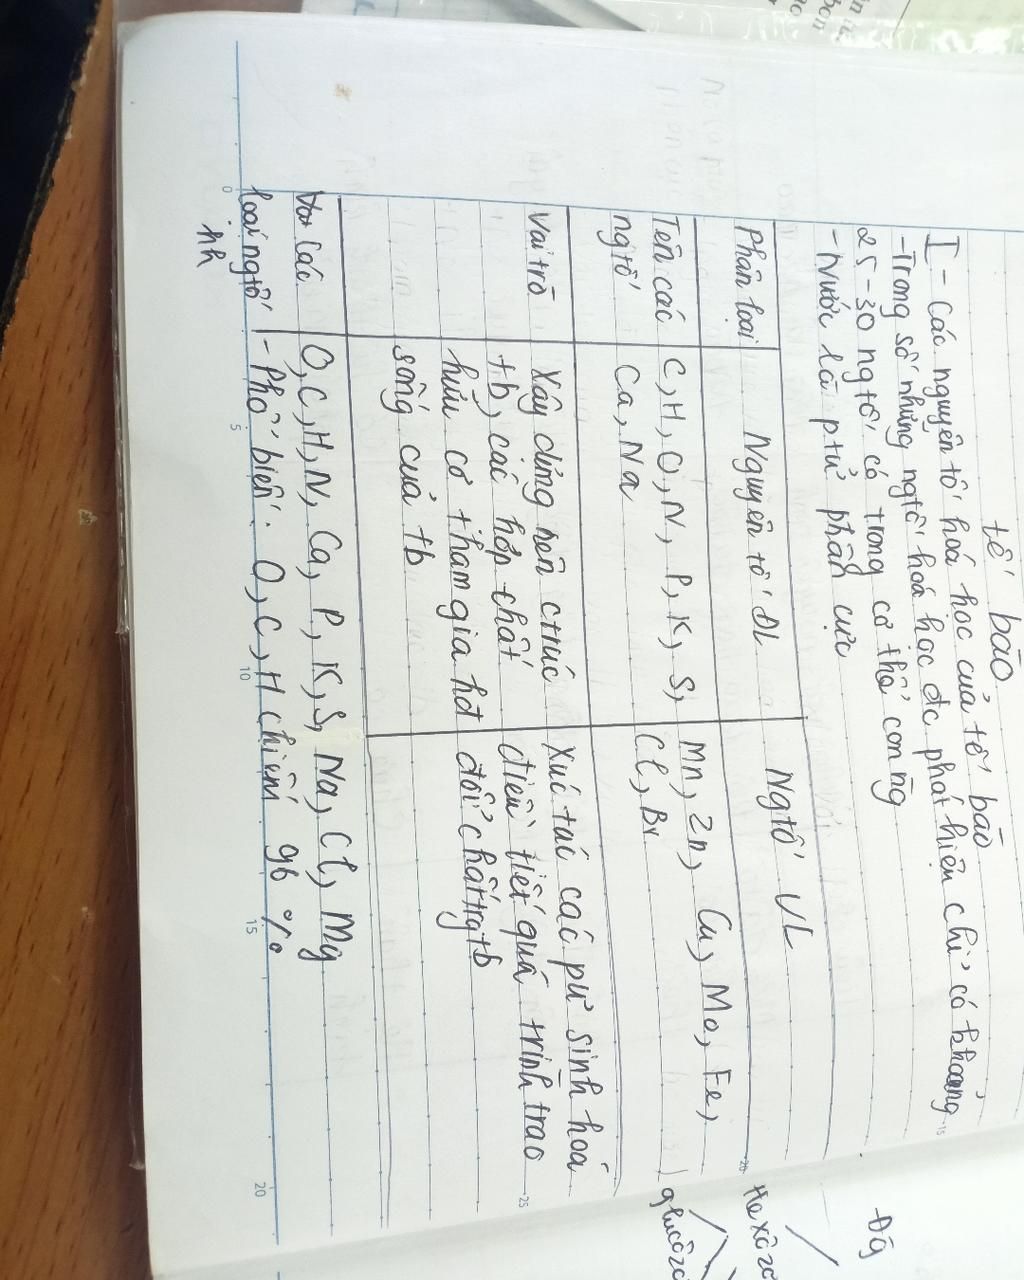 tế bào
I - Các nguyên tố hoá học của tế bào
- Trong số những ngtố hoá học đc phát hiện chỉ có khoảng
25-30 ngtố có trong cơ thể con ng
- Nước là ptử phân cực
Phân loại Nguyên tố ĐL Ngtố VL
Tên các C, H, O, N, P, K, S, Mn, Zn, Cu, Mo, Fe,
ngtố Ca, Na Cl, Br
Vai trò Xây dựng nên ctrúc Xúc tác các pư sinh hoá
tb, các hợp chất điều tiết quá trình trao
hữu cơ tham gia hđ đổi chất trg tb
sống của tb
Vai các O, C, H, N, Ca, P, K, S, Na, Cl, Mg
loại ngtố - Phổ biến: O, C, H chiếm 96 %
hh
Đg
Hexôzơ
glucôzơ
0
5
10
15
20
15
20
25